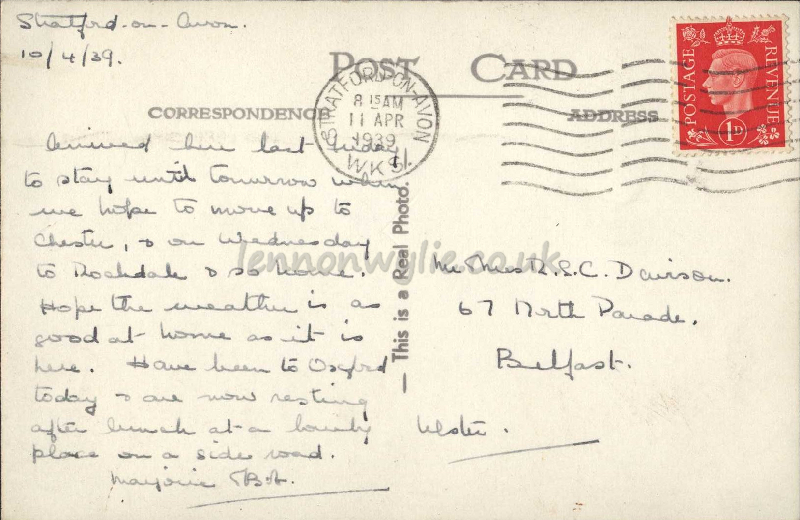 Stratford-on-Avon.
10/4/39.
POST CARD
CORRESPONDENCE
ADDRESS
STRATFORD-ON-AVON
8 15 AM
11 APR
1939
WKS.
POSTAGE
REVENUE
1D
Arrived here last Friday
to stay until tomorrow when
we hope to move up to
Chester, & on Wednesday
to Rochdale & so home.
Hope the weather is as
good at home as it is
here. Have been to Oxford
today & are now resting
after lunch at a lovely
place on a side road.
Marjorie & Bob.
— This is a Real Photo.
Mr Mrs R.S.C. Davison.
67 North Parade.
Belfast.
Ulster.
lennonwylie.co.uk